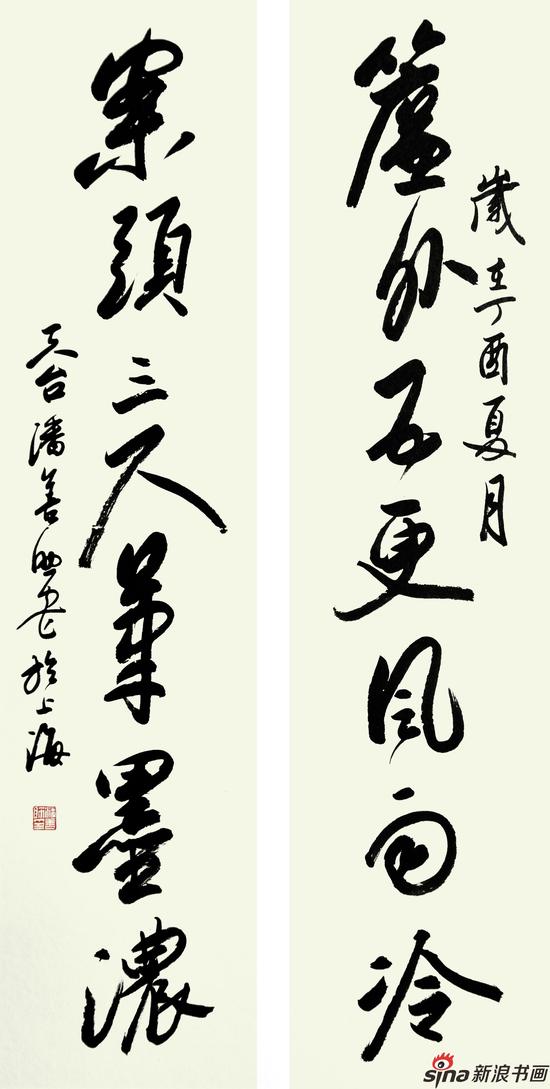 歲在丁酉夏月
簾外五更風雨冷
案頭三尺筆墨濃
天台潘善助書於上海
sina新浪书画